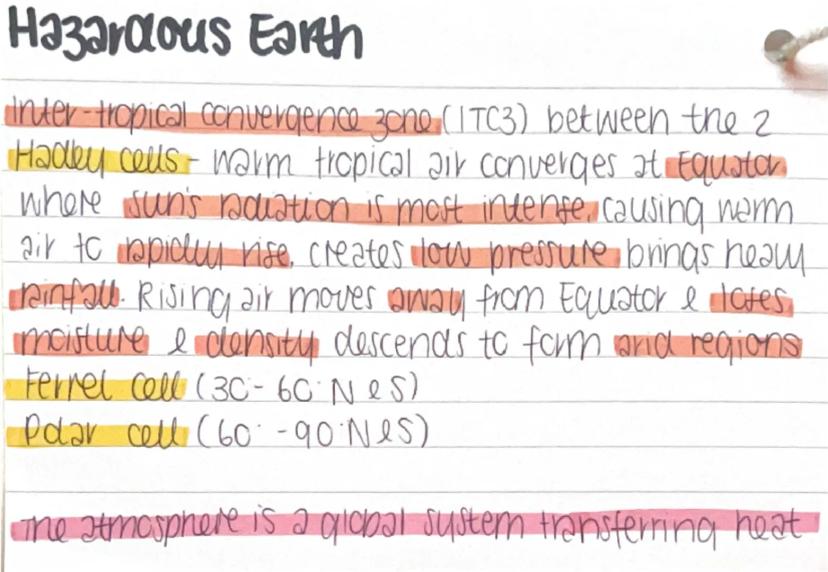 Hazardous Earth
Inter-tropical convergence zone (ITCZ) between the 2
Hadley cells - warm tropical air converges at Equator
where sun's radiation is most intense, causing warm
air to rapidly rise, creates low pressure brings heavy
rainfall. Rising air moves away from Equator & loses
moisture & density descends to form arid regions
Ferrel cell (30°- 60°N & S)
Polar cell (60° -90°N & S)
The atmosphere is a global system transferring heat